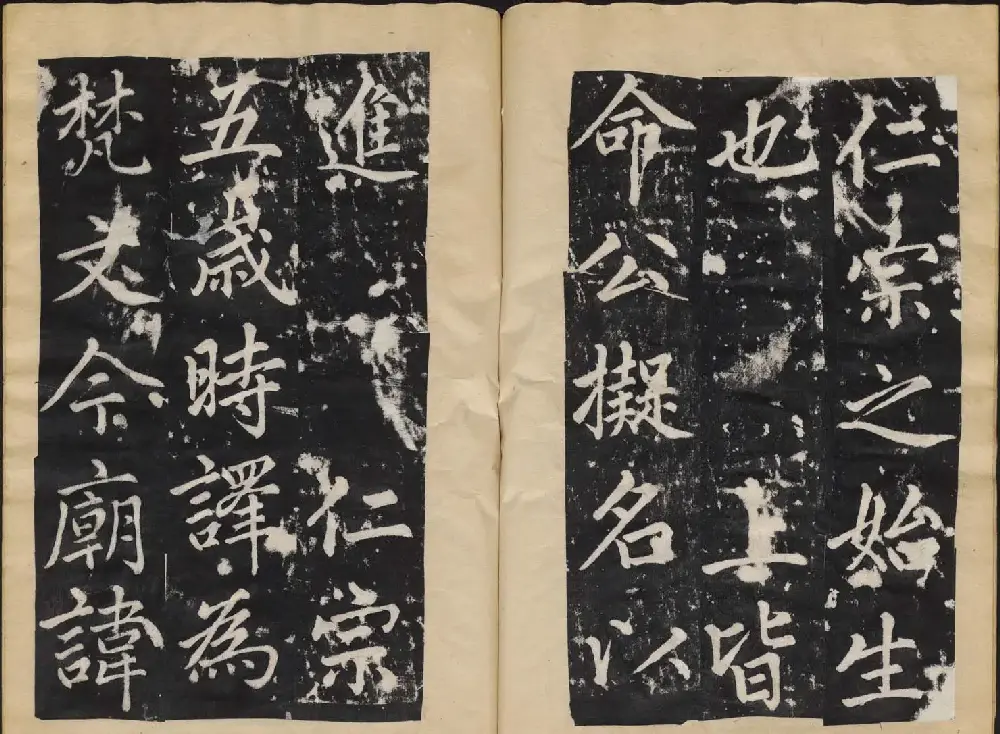 仁宗之始生
也上皆
命公擬名以
進仁宗
五歲時譯為
梵文今廟諱